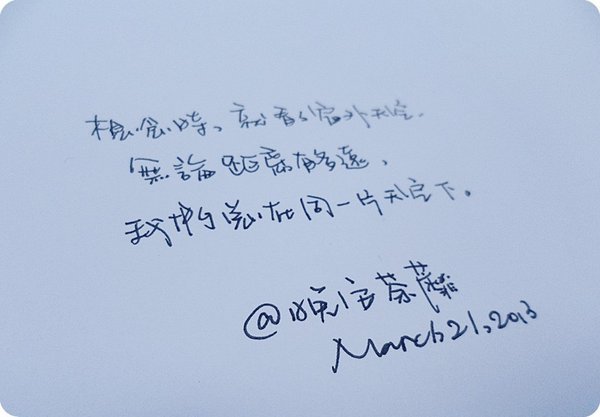 想念時、就看看窗外天空.
無論距離有多遠,
我們總在同一片天空下。
@晚安荼蘼
March.21,2013